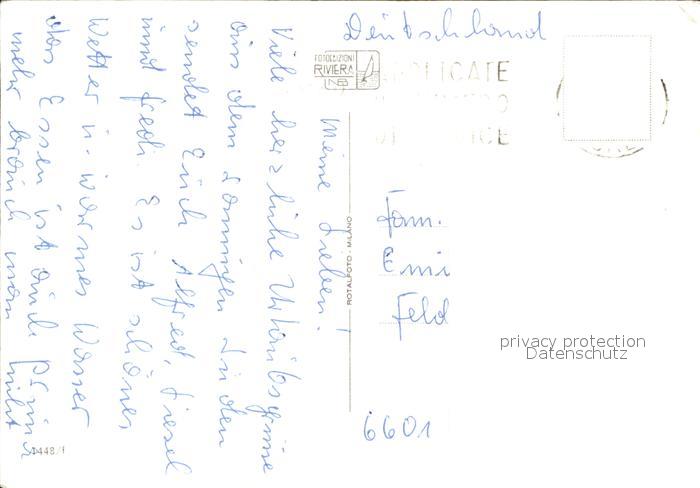 Deutschland
FOTOEDIZIONI
RIVIERA
APPLICATE
Meine Lieben!
Viele herzliche Urlaubsgrüße
aus dem sonnigen Süden
sendet Euch Alfred, Liesel
und Fredi. Es ist schönes
Wetter u. warmes Wasser
das Essen ist auch prima
mehr brauch man nicht
ROTALFOTO - MILANO
Fam.
Emi
Feld
privacy protection
Datenschutz
6601
D448/f